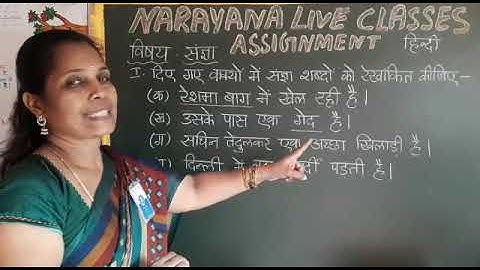 NARAYANA LIVE CLASSES
विषय : संज्ञा ASSIGNMENT हिन्दी
I. दिए गए वाक्यों में संज्ञा शब्दों को रेखांकित कीजिए:-
(क) रेशमा बाग में खेल रही है।
(ख) उसके पास एक गेंद है।
(ग) सचिन तेंदुलकर एक अच्छा खिलाड़ी है।
दिल्ली में पड़ती है।